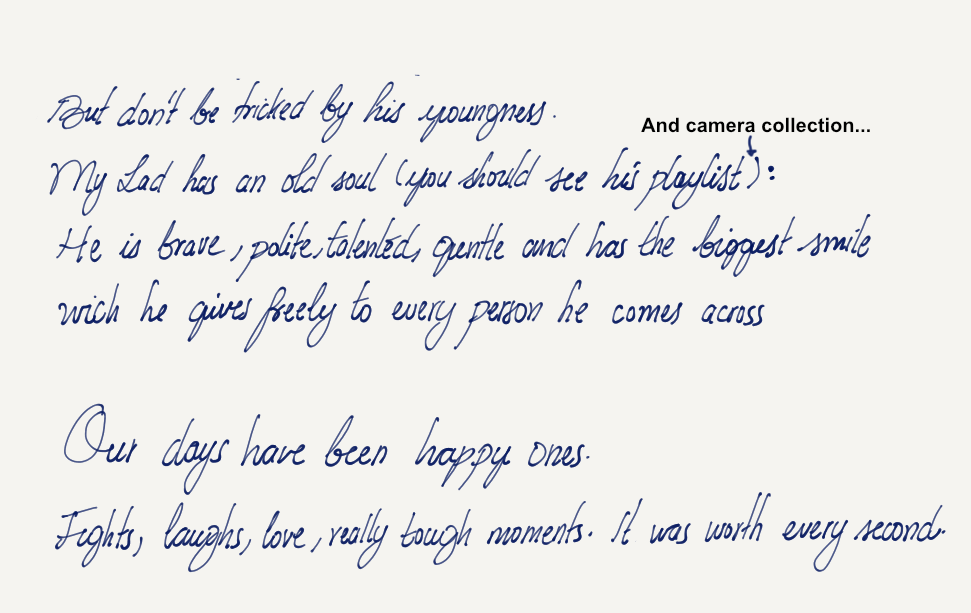 But don't be tricked by his youngness.
And camera collection...
My Lad has an old soul (you should see his playlist):
He is brave, polite, talented, gentle and has the biggest smile
wich he gives freely to every person he comes across
Our days have been happy ones.
Fights, laughs, love, really tough moments. It was worth every second.